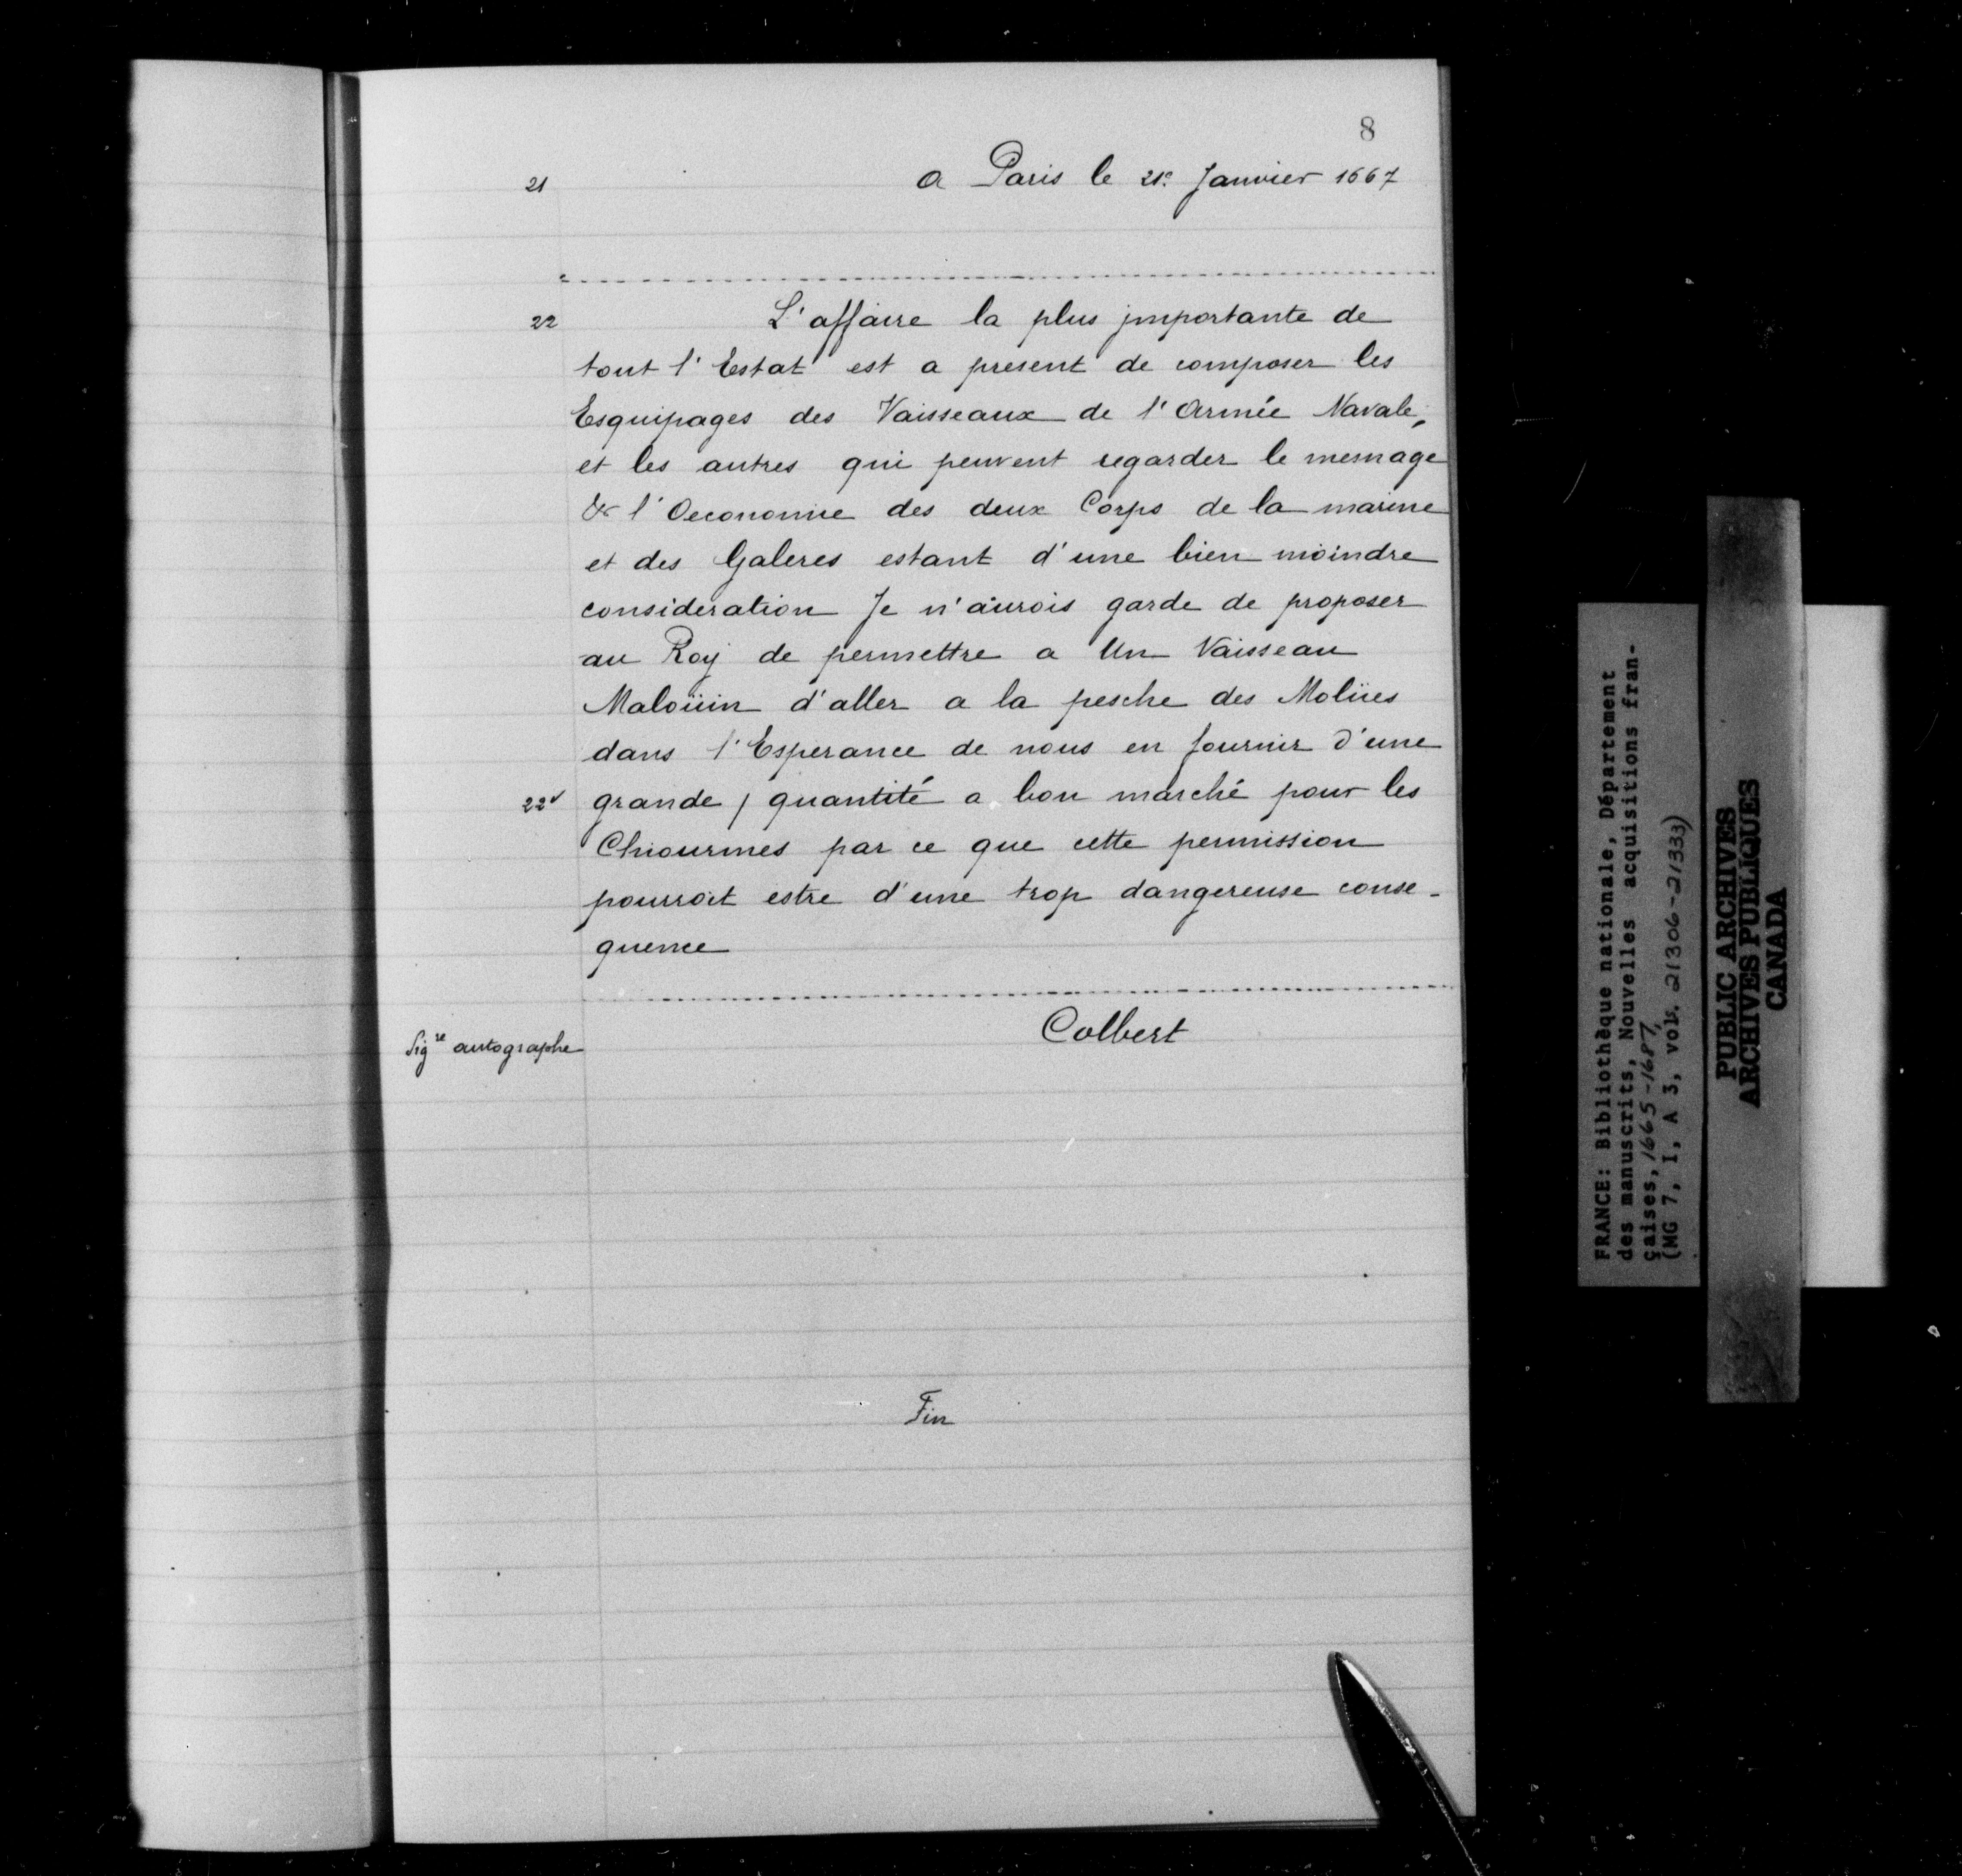 8
21 a Paris le 21e Janvier 1667
22 L'affaire la plus jmportante de
tout l'Estat est a present de composer les
Esquipages des Vaisseaux de l'Armée Navale,
et les autres qui peuvent regarder le mesnage
& l'Oeconomie des deux Corps de la marine
et des Galeres estant d'une bien moindre
consideration Je n'aurois garde de proposer
au Roy de permettre a Un Vaisseau
Maloüin d'aller a la pesche des Molües
dans l'Esperance de nous en fournir d'une
22v grande / quantité a bon marché pour les
Chiourmes par ce que cette permission
pourroit estre d'une trop dangereuse conse-
quence
Colbert
Sigre autographe
Fin
FRANCE: Bibliothèque nationale, Département
des manuscrits, Nouvelles acquisitions fran-
çaises, 1665-1687,
(MG 7, I, A 3, vols. 21306-21333)
PUBLIC ARCHIVES
ARCHIVES PUBLIQUES
CANADA